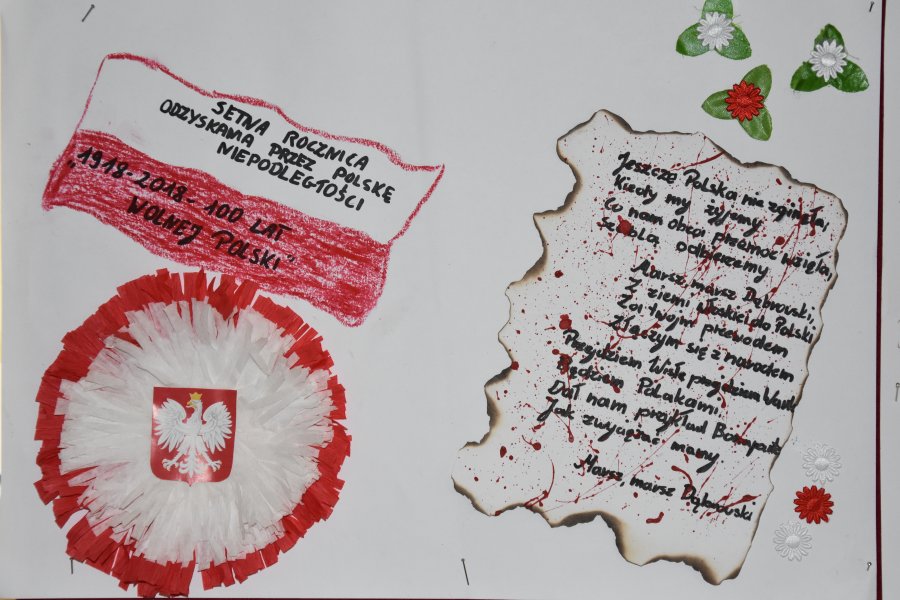 SETNA ROCZNICA
ODZYSKANIA PRZEZ POLSKĘ
NIEPODLEGŁOŚCI
"1918-2018-100 LAT
WOLNEJ POLSKI"
Jeszcze Polska nie zginęła,
Kiedy my żyjemy
Co nam obca przemoc wzięła,
szablą odbierzemy
Marsz, marsz Dąbrowski,
Z ziemi włoskiej do Polski
Za twoim przewodem
Złączym się z narodem
Przejdziem Wisłę przejdziem Wartę
Będziem Polakami
Dał nam przykład Bonaparte
Jak zwyciężać mamy
Marsz, marsz Dąbrowski